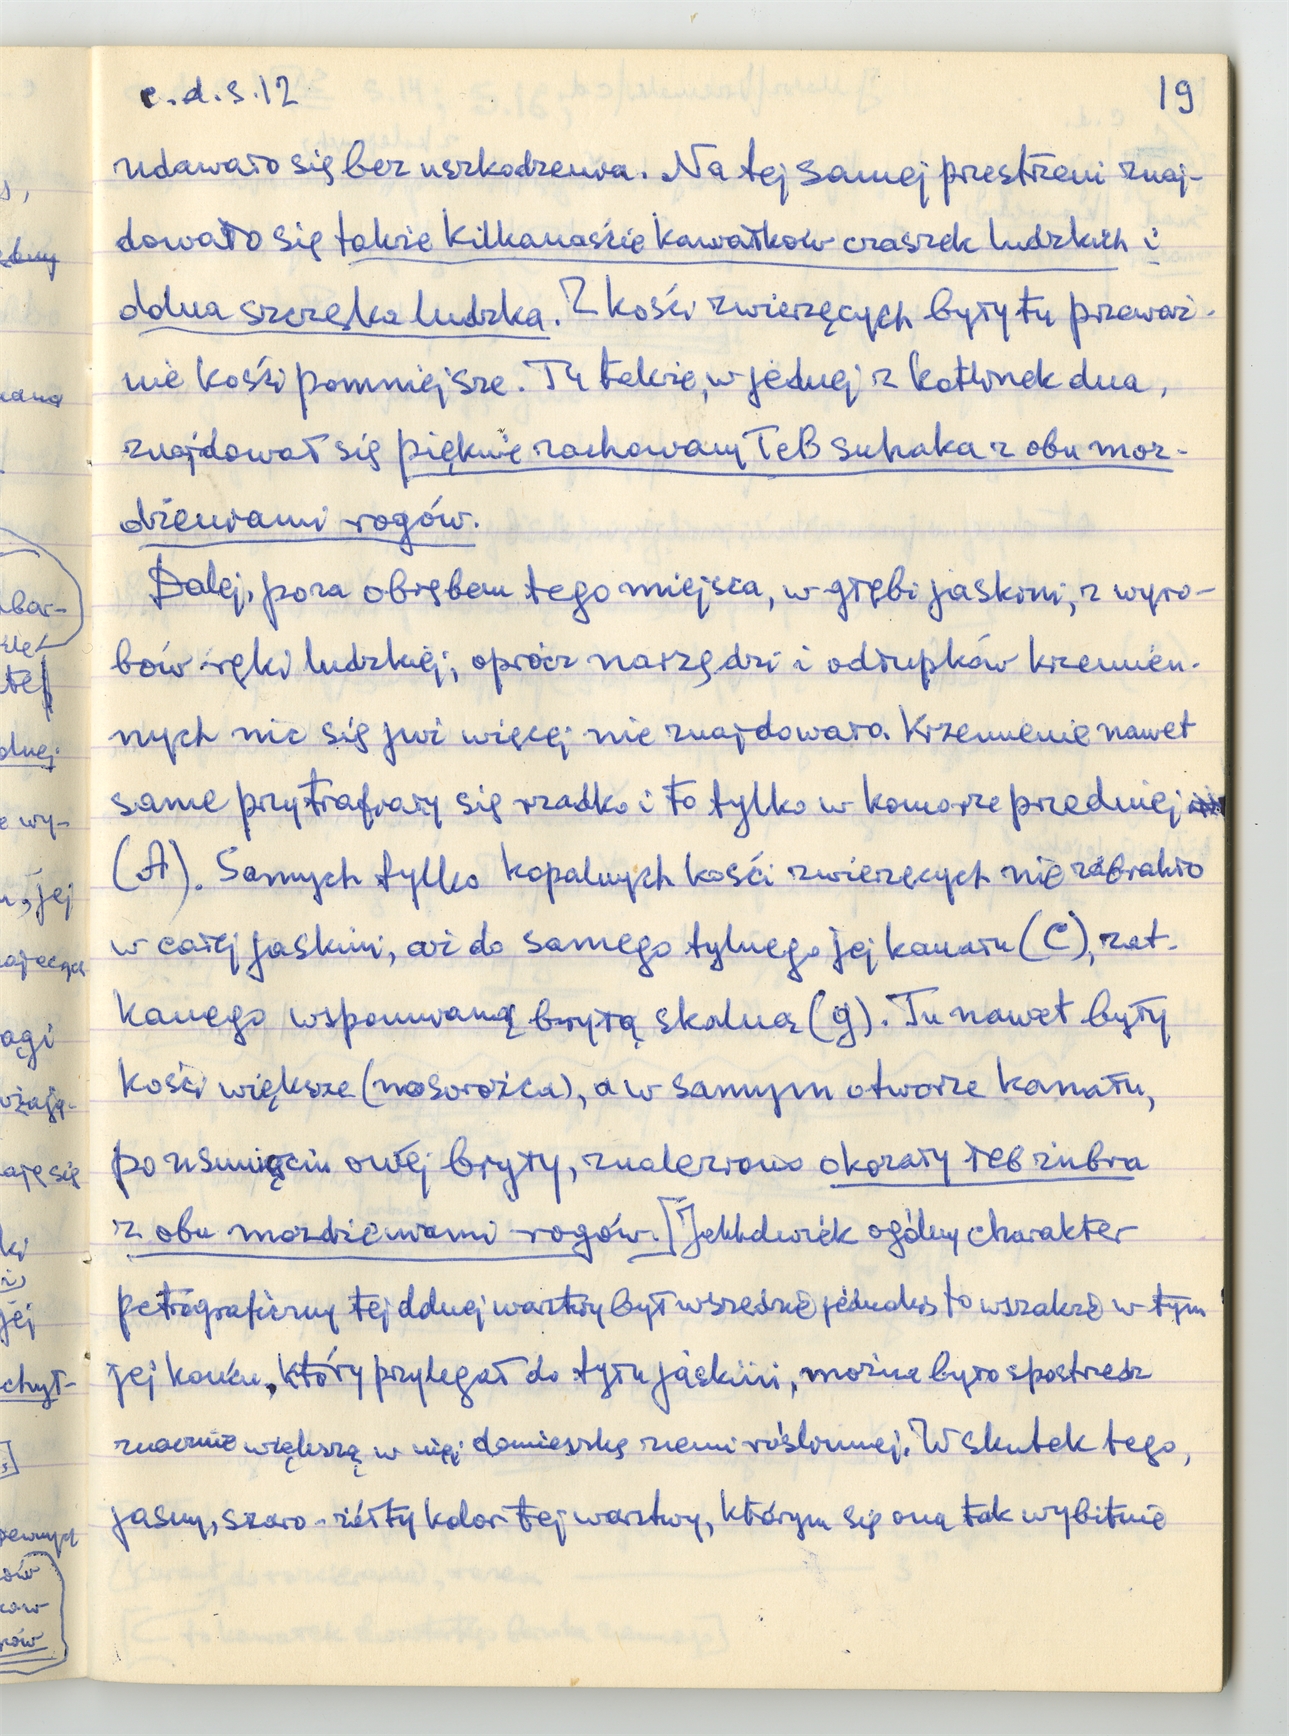 c.d.s.12 19
udawało się bez uszkodzenia. Na tej samej przestrzeni znaj-
dowało się także kilkanaście kawałków czaszek ludzkich i
dolna szczęka ludzka. Z kości zwierzęcych były tu przeważ-
nie kości pomniejsze. Tu także, w jednej z kotlinek dna,
znajdował się pięknie zachowany łeb suhaka z obu moż-
dżeniami rogów.
Dalej, poza obrębem tego miejsca, w głębi jaskini, z wyro-
bów ręki ludzkiej, oprócz narzędzi i odłupków krzemien-
nych nic się już więcej nie znajdowało. Krzemienie nawet
same przytrafiały się rzadko i to tylko w komorze przedniej
(A). Samych tylko kopalnych kości zwierzęcych nie zabrakło
w całej jaskini, aż do samego tylnego jej kanału (C), zat-
kanego wspomnianą bryłą skalną (g). Tu nawet były
kości większe (nosorożca), a w samym otworze kanału,
po usunięciu owej bryły, znaleziono okazały łeb żubra
z obu możdżeniami rogów. [Jakkolwiek ogólny charakter
petrograficzny tej dolnej warstwy był wszędzie jednaki, to wszakże w tym
jej końcu, który przylegał do tyłu jaskini, można było spostrzedz
znacznie większą w niej domieszkę ziemi roślinnej. Wskutek tego,
jasny, szaro-żółty kolor tej warstwy, którym się ona tak wybitnie